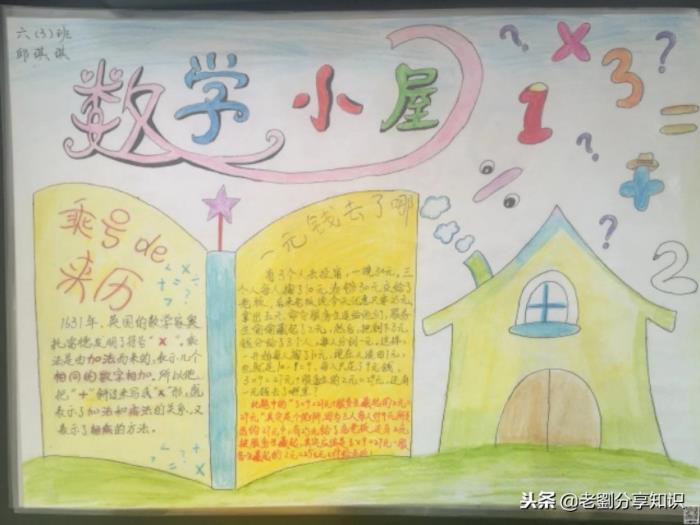 六(3)班
邱琪琪
数学小屋
乘号de
来历
1631年，英国的数学家奥
扎雷德发明了符号"×"。乘
法是由加法而来的，表示几个
相同的数字相加。所以他
把"+"斜过来写成"×"形，既
表示了加法和乘法的关系，又
表示了相乘的方法。
一元钱去了哪
有3个人去投宿，一晚30元。三
个人每人掏了10元，凑够30元交给了
老板。后来老板说今天优惠只要25元，
拿出5元，命令服务生退给他们，服务
生偷偷藏起了2元，然后，把剩下3元
钱分给了3个人，每人分到一元。这样，
一开始每人掏了10元，现在又退回1元，
也就是10-1=9，每人只花了9元钱，
3×9=27元+服务生的2元=29元，还有
一元钱去了哪里？
1
2
3
×
÷
+
=
?
?
?
?
头条 @老劉分享知识